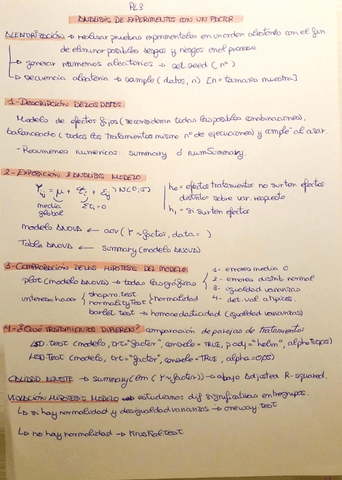 PL3
ANALISIS DE EXPERIMENTOS CON UN FACTOR
ALEATORIZACIÓN → realizar pruebas experimentales en un orden aleatorio con el fin
de eliminar posibles sesgos y riesgos en el proceso.
↳ generar números aleatorios → set.seed (nº)
↳ secuencia aleatoria → sample (datos, n) [n = tamaño muestra]
1 - DESCRIPCIÓN DE LOS DATOS:
Modelo de efectos fijos (se consideran todas las posibles combinaciones),
balanceado (todos los tratamientos mismo nº de ejecuciones) y compl. al azar.
- Resumenes numéricos: summary ó numSummary.
2 - EXPOSICIÓN ANALISIS MODELO
Yij = μ + τi + εij → N(0,σ)
media global
Στi = 0
h0 = efectos tratamientos no surten efectos
distintos sobre var. respuesta
h1 = si surten efectos
modelo ANOVA ← aov (Y ~ factor, data = )
Tabla ANOVA ← summary (modelo ANOVA)
3 - COMPROBACIÓN DE LAS HIPOTESIS DEL MODELO:
plot (modelo ANOVA) → todas las gráficas
1 - errores media 0
2 - errores distrib normal
3 - igualdad varianzas
4 - det. val atípicos.
interesa hacer
shapiro.test
normalityTest
normalidad
barlet.test → homocedasticidad (igualdad varianzas)
4 - ¿QUE TRATAMIENTOS DIFIEREN? comparación de parejas de tratamientos
LSD.test (modelo, trt = "factor", console = TRUE, p.adj = "holm", alpha = 0,05)
HSD.test (modelo, trt = "factor", console = TRUE, alpha = 0,05)
CALIDAD AJUSTE → summary (lm (Y ~ factor)) → abajo Adjusted R-squared.
VIOLACIÓN HIPOTESIS MODELO → estudiamos dif significativas entre grupos.
↳ si hay normalidad y desigualdad varianzas → oneway.test
↳ no hay normalidad → kruskal.test